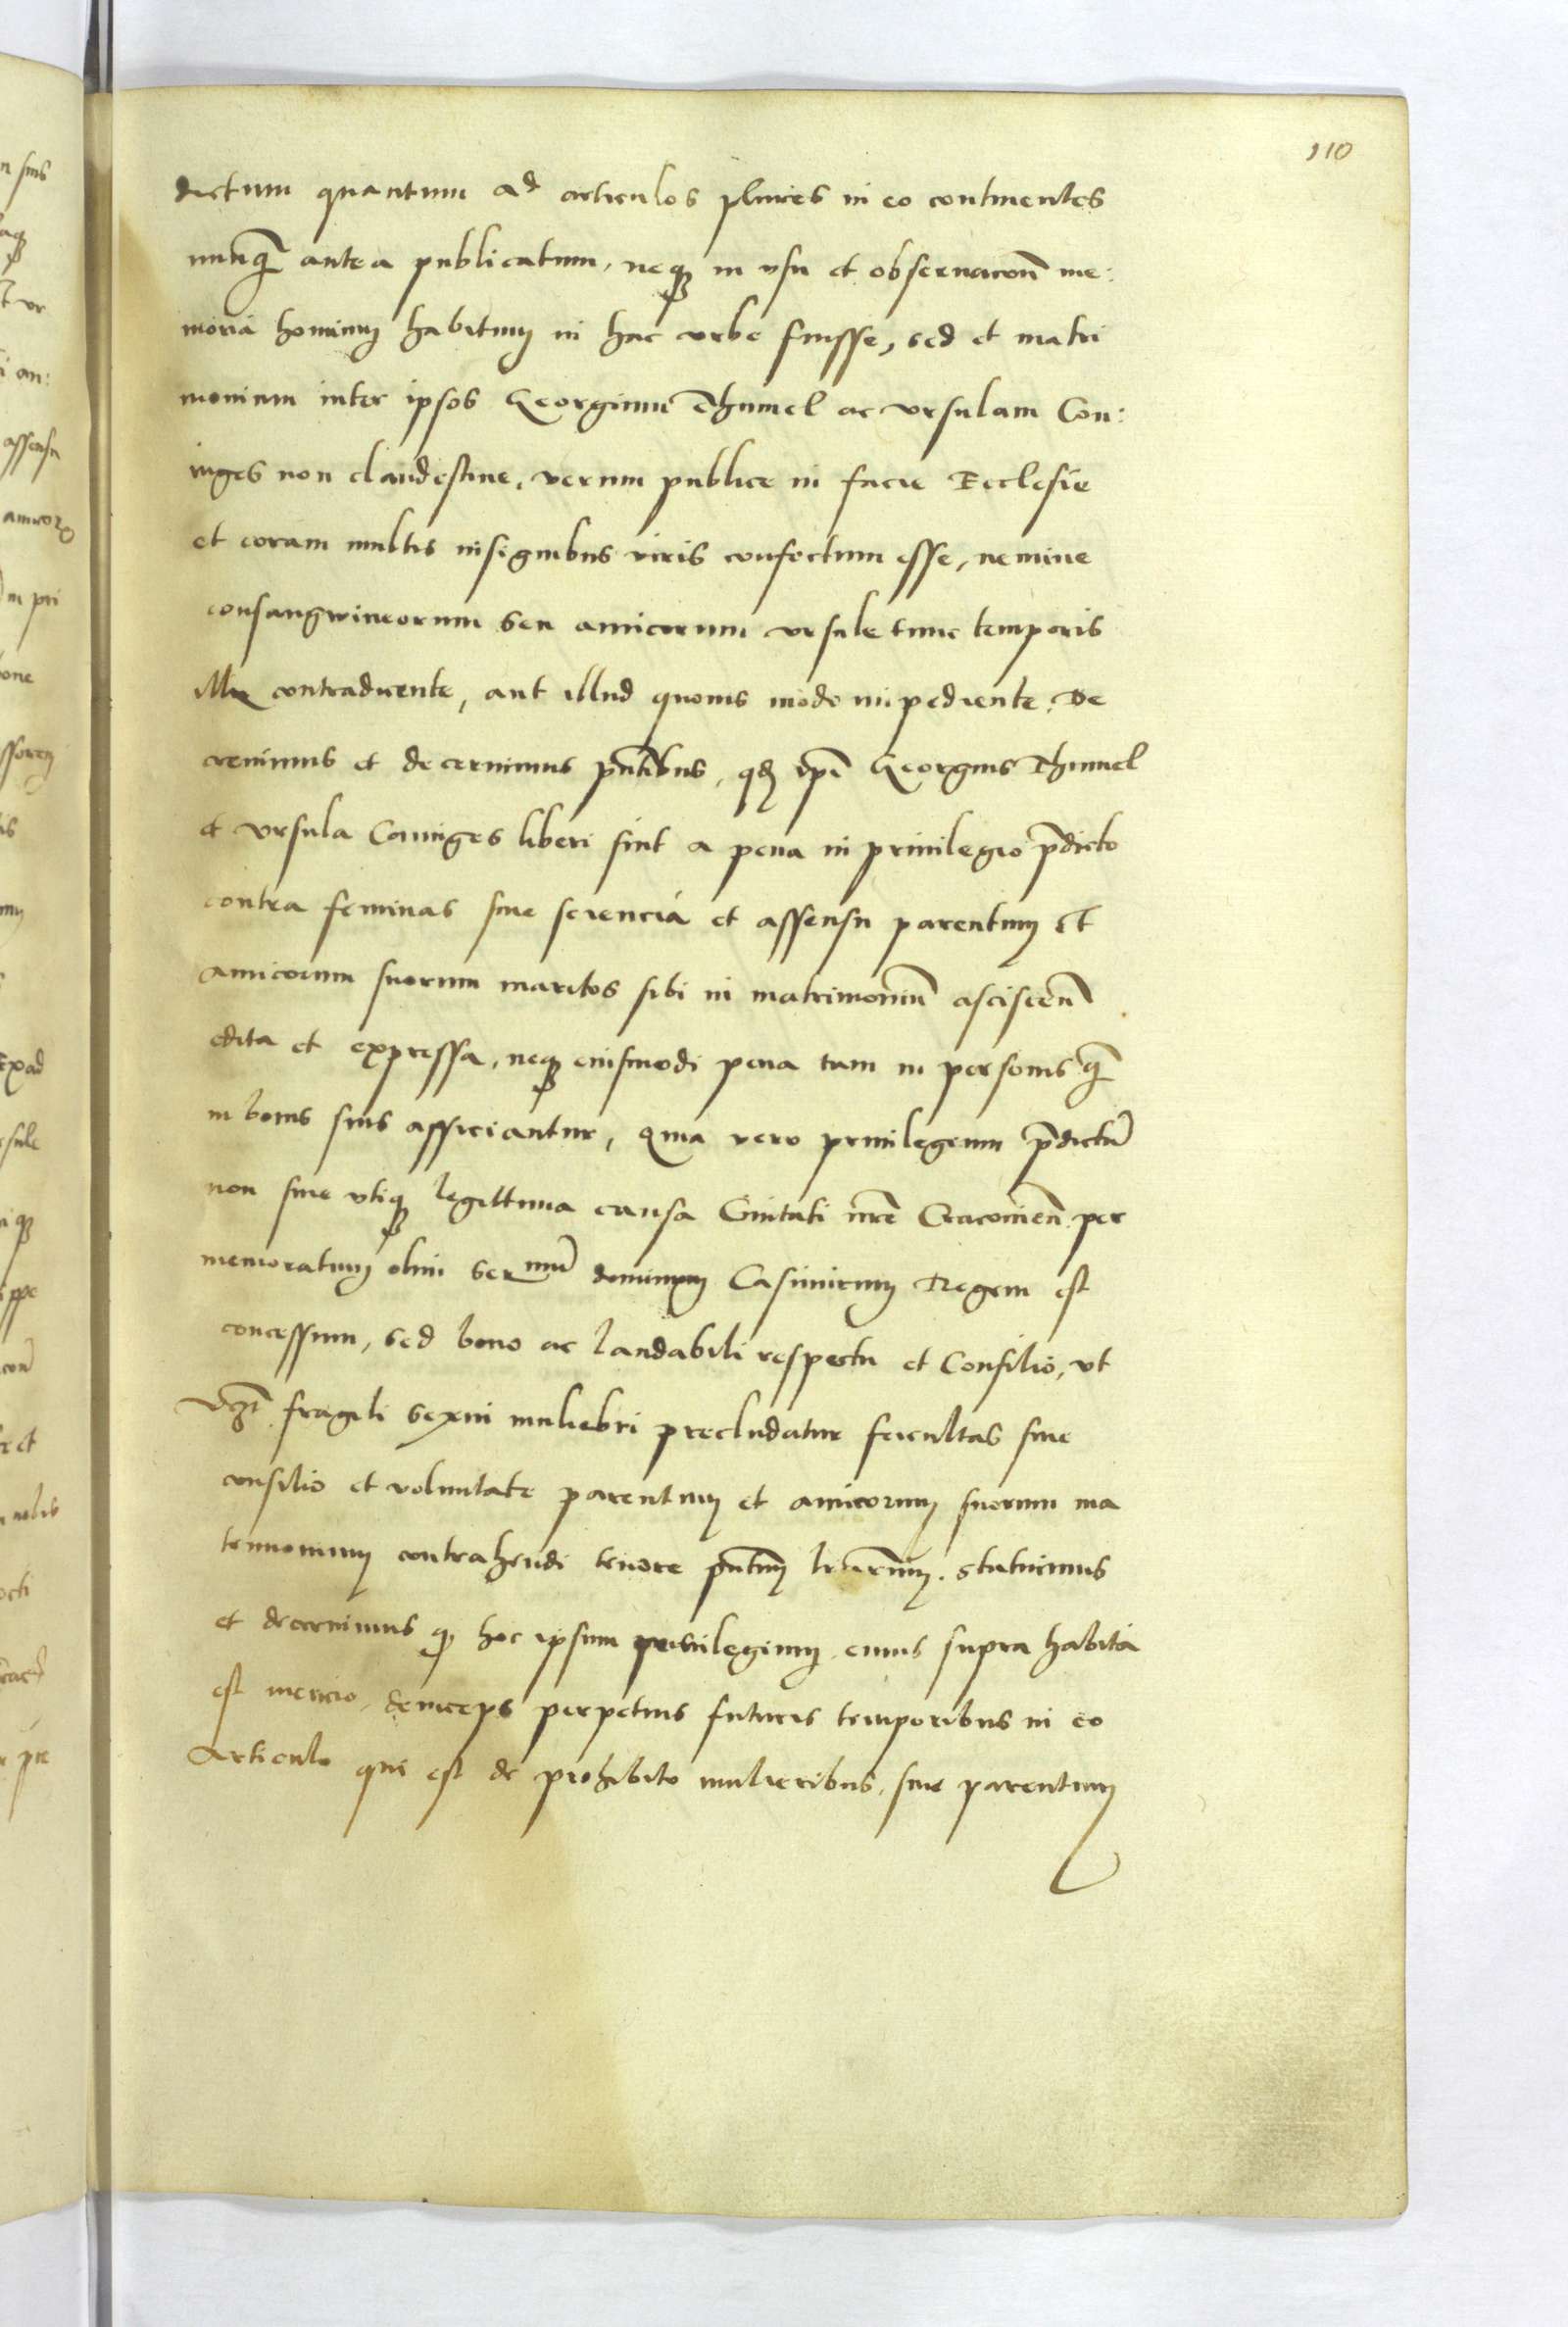 110
dictum quantum ad articulos plures in eo continentes
nunq̃ antea publicatum, neq₃ in vsu et obseruacoñ me:
moriá hominuɱ habituɱ in hac vrbe fuisse, sed et matri
monium inter ipsos Georgium Thumel ac vrsulam Con:
iuges non clandestine, verum publice in facie Ecclesie
et coram multis insignibus viris confectum esse, nemine
consangwineorum seu amicorum vrsule tunc temporis
illi contradicente, aut illud quouis modo impediente. De
creuimus et decernimus pñtibus, qđ ip̃i Georgius Thumel
et vrsula Coniuges liberi sint a pena in priuilegio p̃dicto
contra feminas sine scienciá et assensu parentuɱ et
amicorum suorum maritos sibi in matrimoniũ asciscen̄
edita et expressa, neq₃ eiusmodi pena tam in personis q̃
in bonis suis afficiantur, Quia vero priuilegium p̃dictũ
non sine vtiq₃ legittima causa Ciuitati nr̃e Cracouien̄ per
memoratuɱ olim Ser mũ dominuɱ Casimiruɱ Regem est
concessum, sed bono ac laudabili respectu et Consilio, vt
vz̃ fragili sexui muliebri precludatur facultas sine
consilio et voluntate parentuɱ et amicoruɱ suorum ma
trimoniuɱ contrahendi tenore pñtiuɱ lr̃aruɱ. statuimus
et decernimus q₃ hoc ipsum priuilegiuɱ cuius supra habitá
est mencio, deinceps perpetuis futuris temporibus in eo
Articulo qui est de prohibito mulieribus, sine parentuɱ